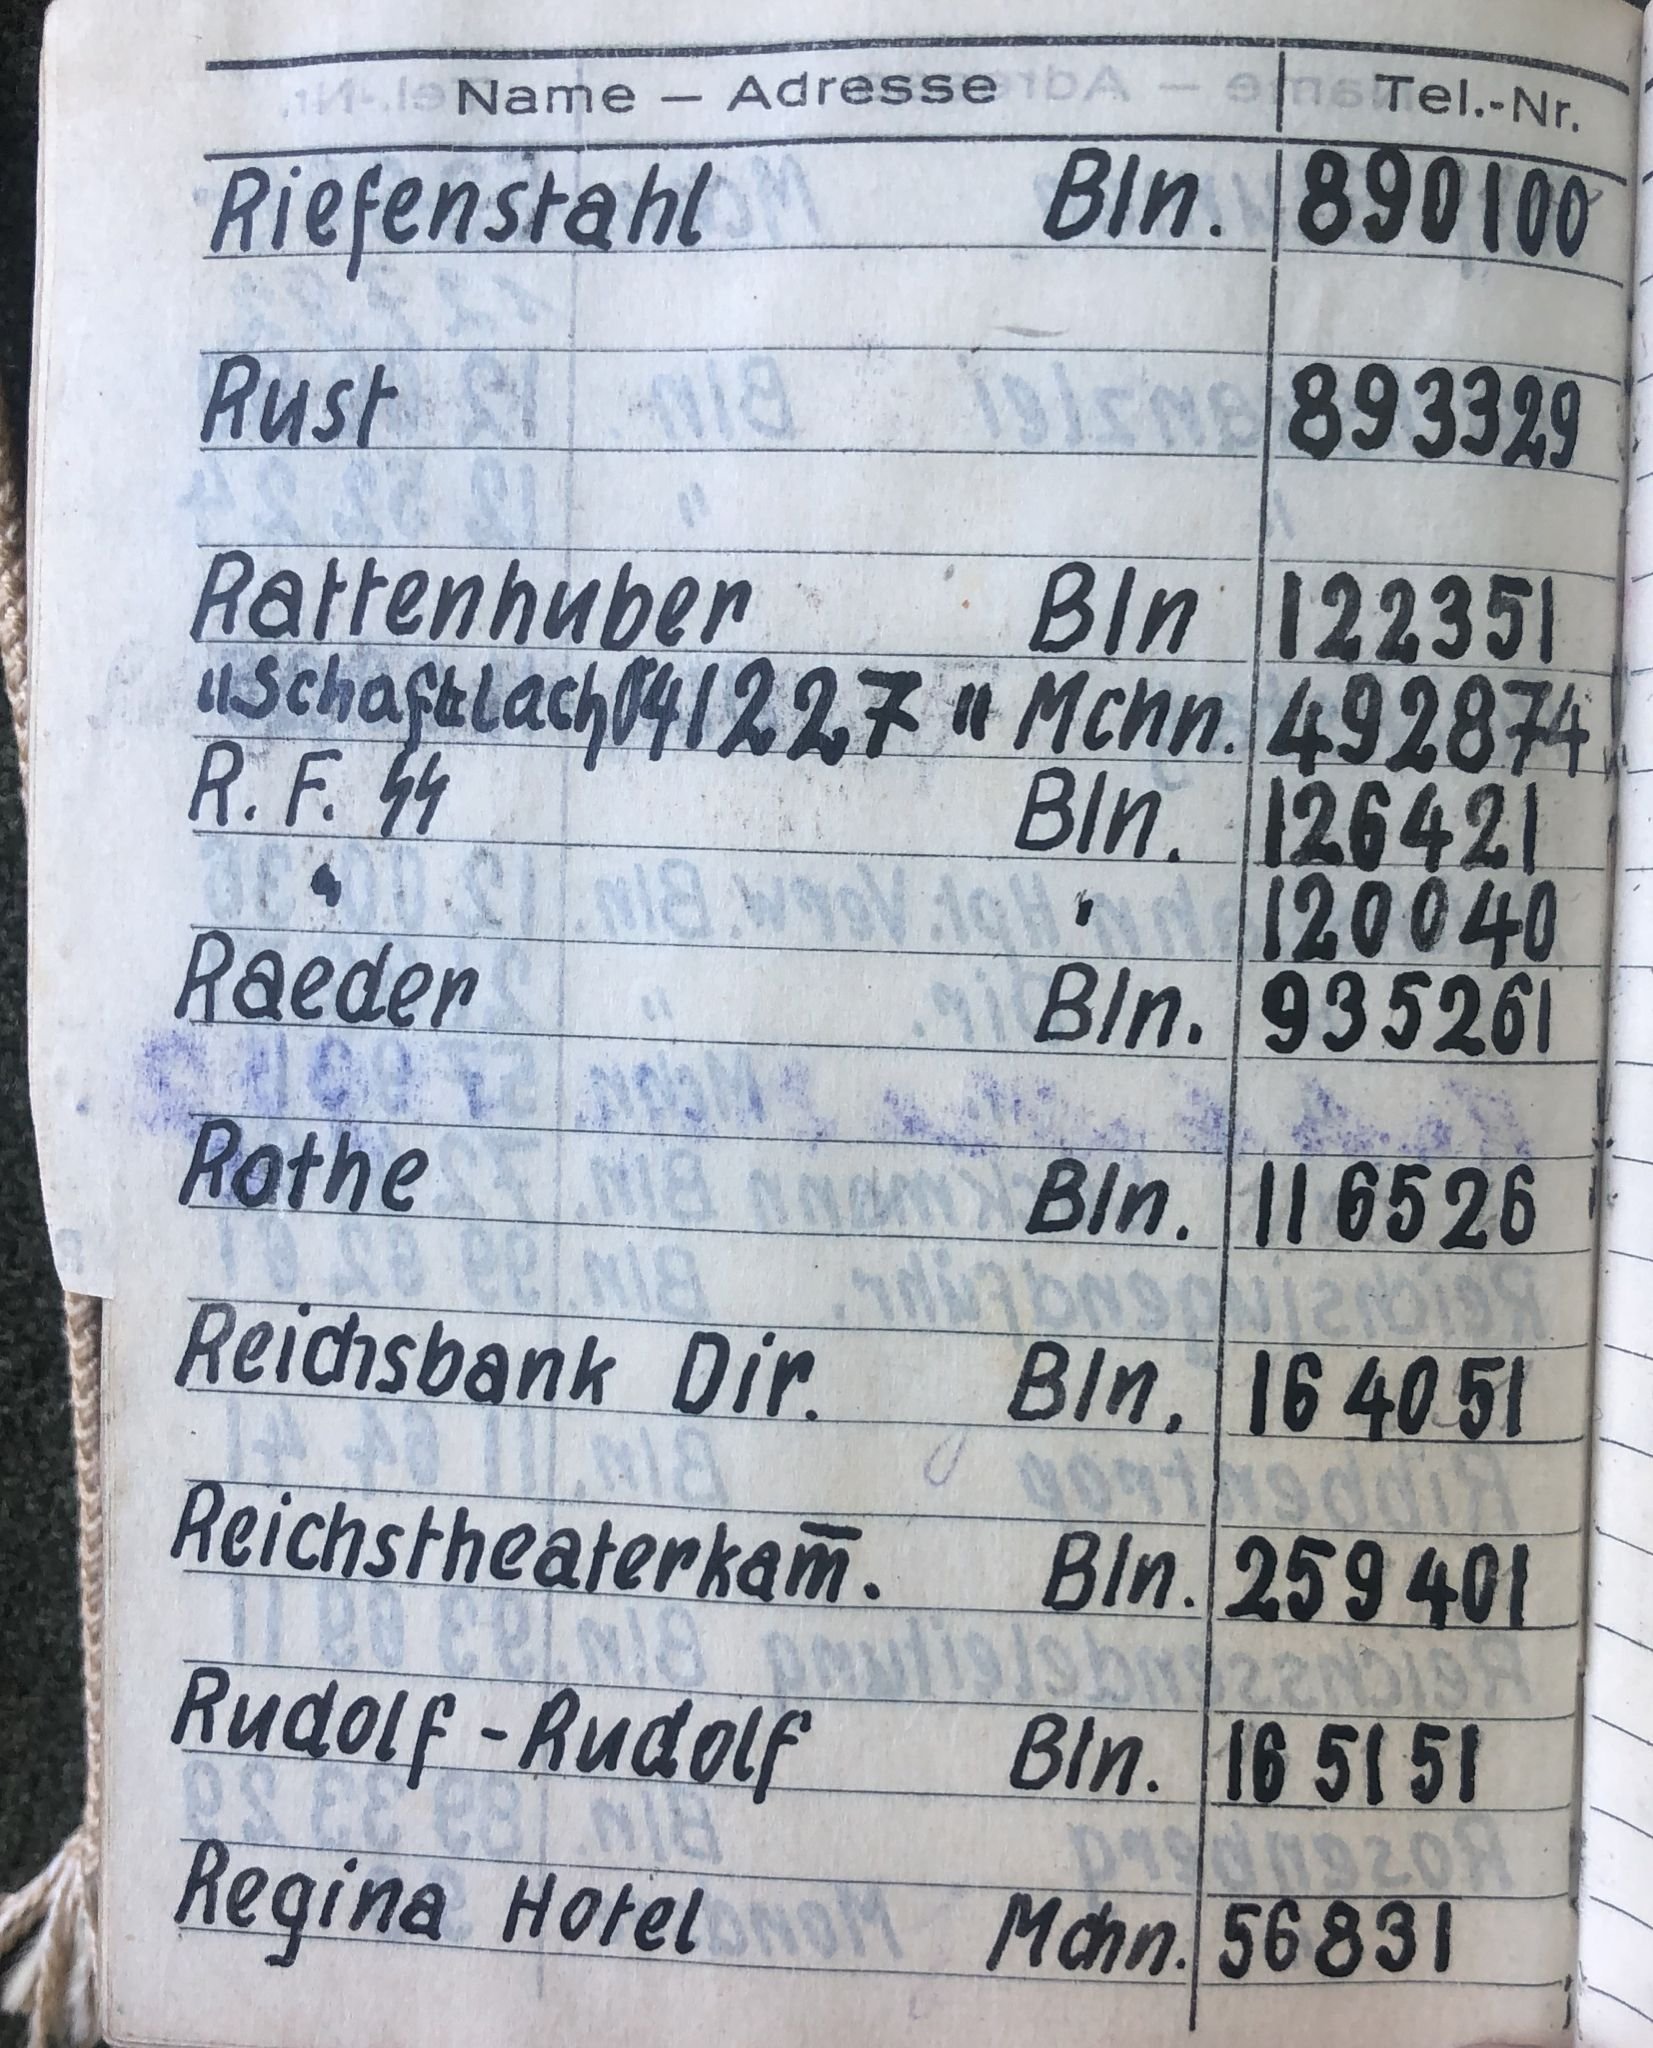 Name – Adresse Tel.-Nr.
Riefenstahl Bln. 890100
Rust 893329
Rattenhuber Bln 122351
" Schaftlach 41227 " Mchn. 492874
R. F. SS Bln. 126421
" " 120040
Raeder Bln. 935261
Rothe Bln. 116526
Reichsbank Dir. Bln. 16 40 51
Reichstheaterkam̅. Bln. 259 401
Rudolf - Rudolf Bln. 16 51 51
Regina Hotel Mchn. 56831